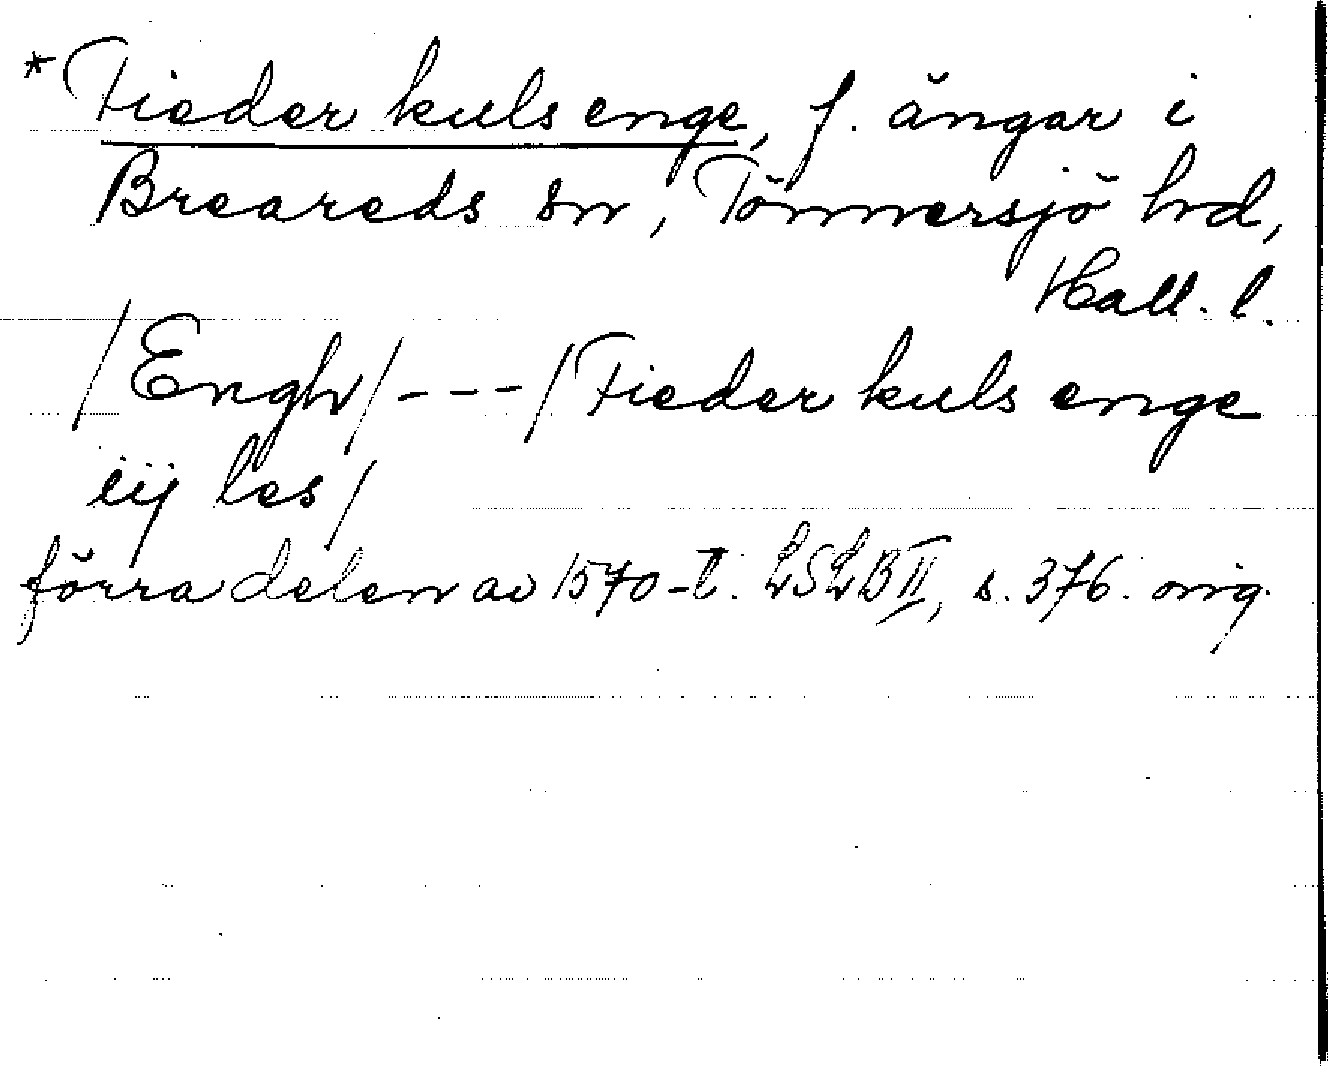 *Fieder kuls enge, f. ängar i
Breareds sn, Tönnersjö hd,
Hall. l.
/Engh/---/Fieder kuls enge
iij les/
förra delen av 1570-t. LSLB II, s. 376. orig.